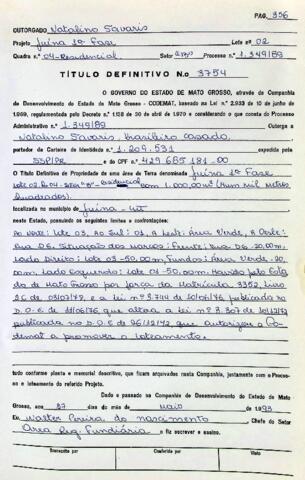 PAG. 356
OUTORGADO Natalino Savaris
Projeto Juína 1ª Fase Lote nº 02
Quadra n.º 04-Residencial Setor Processo n.º 1.349/89
TÍTULO DEFINITIVO N.o 3754
O GOVERNO DO ESTADO DE MATO GROSSO, através da Companhia
de Desenvolvimento do Estado de Mato Grosso - CODEMAT, baseado na Lei n.º 2.933 de 10 de junho de
1969, regulamentada pelo Decreto n.º 1.138 de 30 de abril de 1970 e considerando o que consta do Processo
Administrativo n.º 1.349/89 Outorga a
Natalino Savaris, brasileiro casado,
portador da Carteira de Identidade n.º 1.209.531 expedida pela
SSP/PR e do CPF n.º 429.685.181-00
O Título Definitivo de Propriedade de uma área de Terra denominada Juína 1ª Fase
Lote 02 Residencial com 1.000,00m² (hum mil metros
quadrados)
localizada no município de Juína - MT
neste Estado, possuindo os seguintes limites e confrontações:
Ao Norte: Lote 03, Ao Sul: 01, A Leste: Área Verde, A Oeste:
Rua 06. Situação dos marcos: Frente: Rua 06-20,00m,
Lado Direito: Lote 03-50,00m, Fundos: Área Verde-20,
00m, Lado Esquerdo: Lote 01-50,00m. Havido pelo Estado
de Mato Grosso por força da Matrícula 3352, Livro
2C de 03/07/78, e a Lei nº 3.744 de 10/06/76 publicada no
D.O.E de 11/06/76, que altera a Lei nº 3.307 de 20/12/72
publicada no D.O.E de 26/12/72 que autoriza a Co-
demat a promover o Loteamento.
tudo conforme planta e memorial descritivo, que ficam arquivados nesta Companhia, juntamente com o Proces-
so e loteamento do referido Projeto.
Dado e passado na Companhia de Desenvolvimento do Estado de Mato
Grosso, aos dias do mês de Maio de 1993
Eu, Walter Pereira do Nascimento Chefe do Setor
Área Reg. Fundiária o fiz escrever e assino.
Transcrito por Conferido por Visto